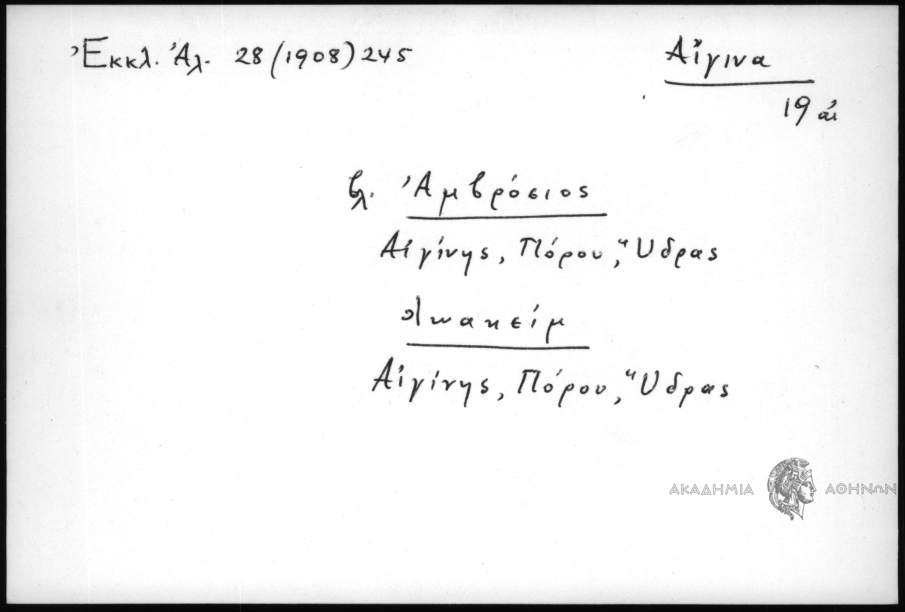 Ἐκκλ. Ἀλ. 28 (1908) 245
Αἴγινα
19 αἰ
βλ. Ἀμβρόσιος
Αἰγίνης, Πόρου, Ὕδρας
Ἰωακείμ
Αἰγίνης, Πόρου, Ὕδρας
ΑΚΑΔΗΜΙΑ ΑΘΗΝΩΝ